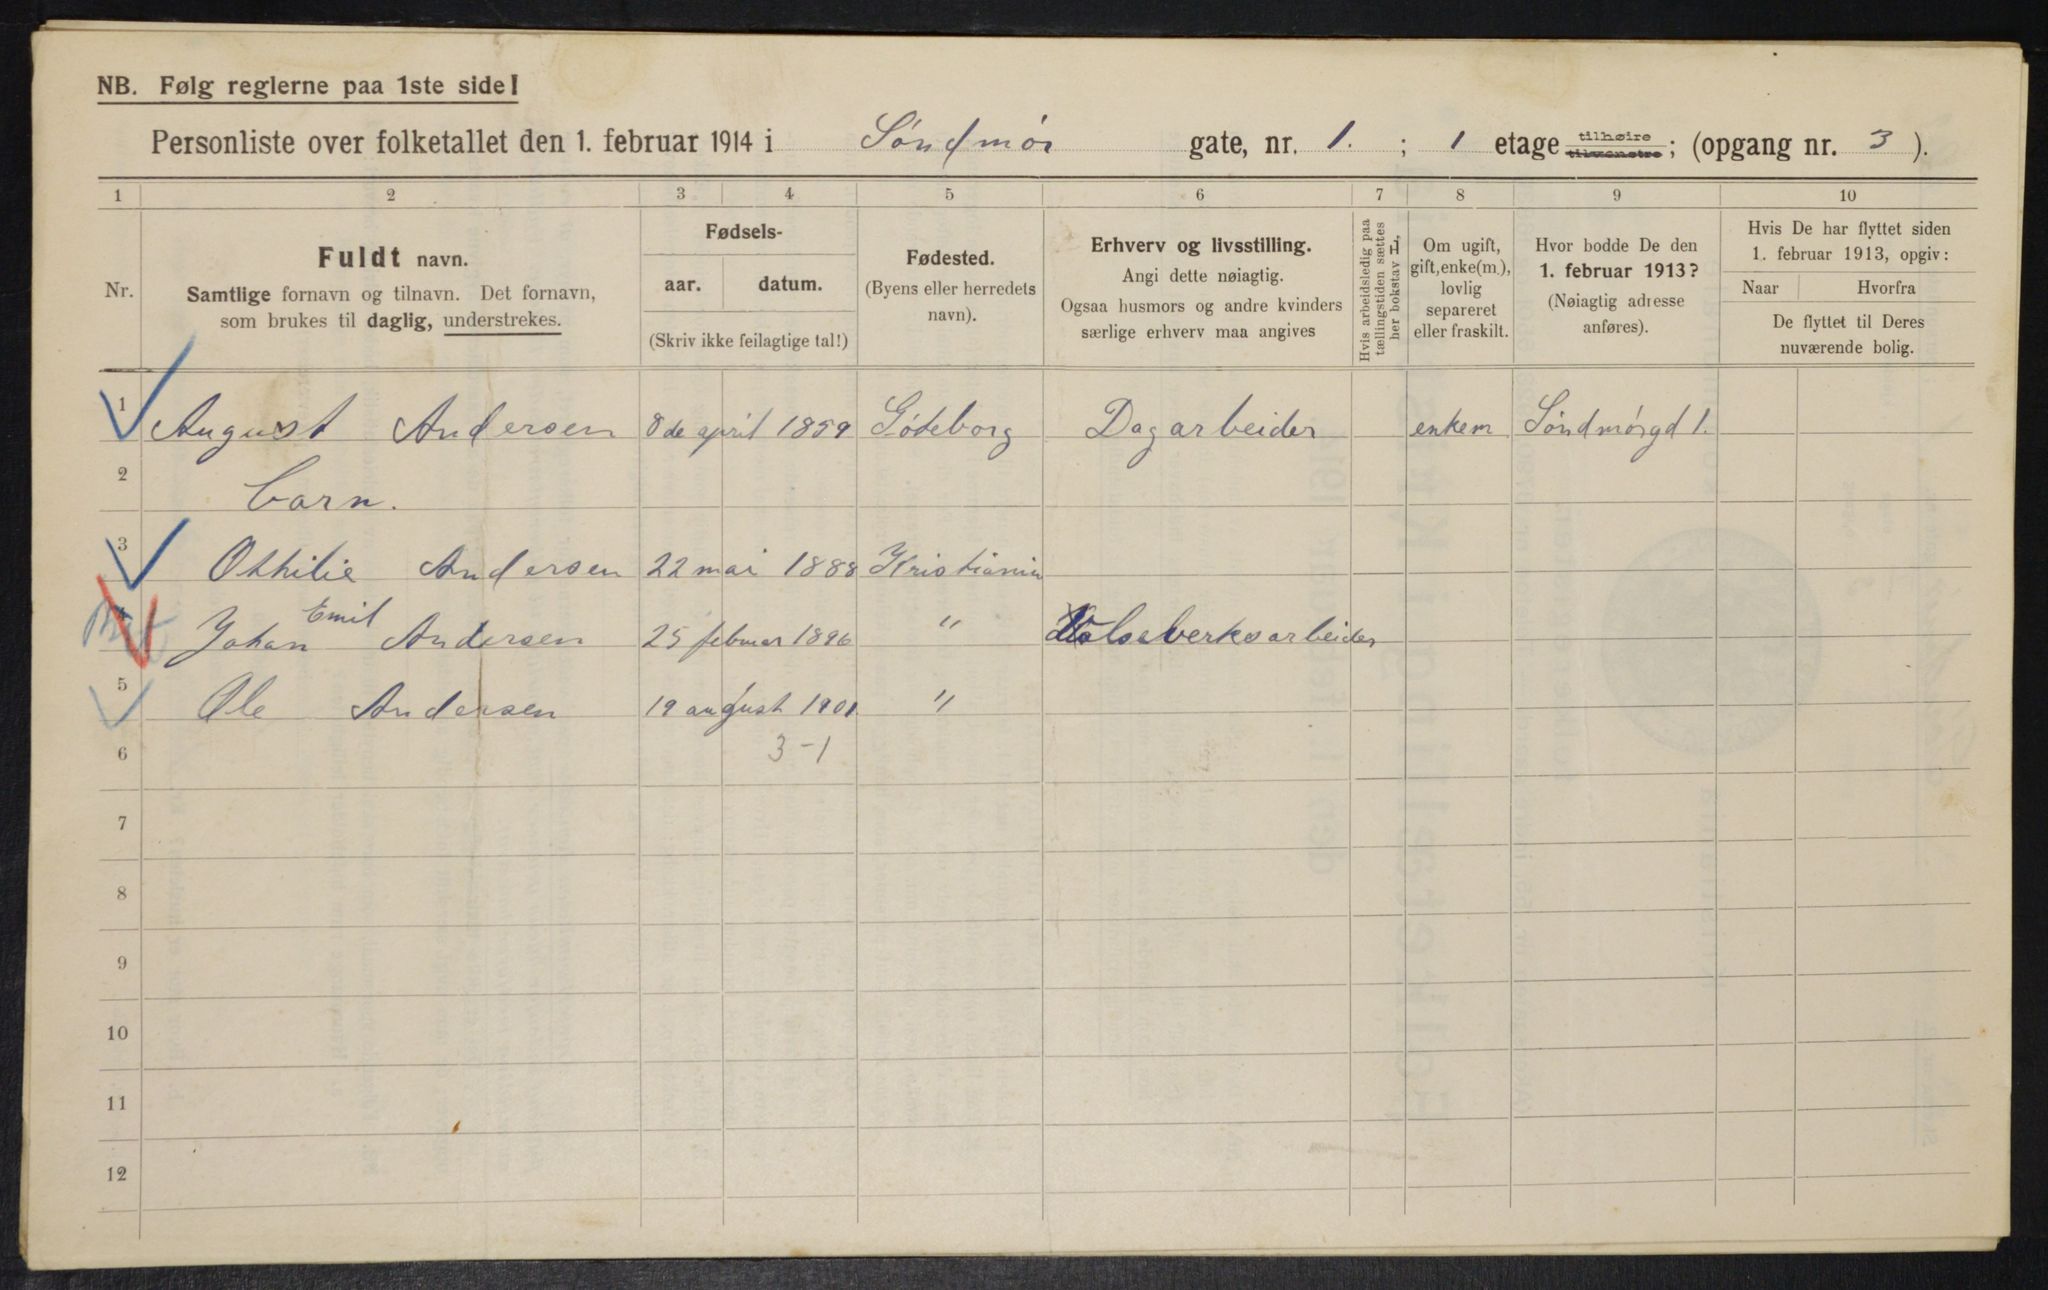 NB. Følg reglerne paa 1ste side!
Personliste over folketallet den 1. februar 1914 i Söndmör gate, nr. 1. ; 1 etage tilhøire tilvenstre; (opgang nr. 3).
1 2 3 4 5 6 7 8 9 10
Nr.
Fuldt navn.
Samtlige fornavn og tilnavn. Det fornavn,
som brukes til daglig, understrekes.
Fødsels-
aar. datum.
(Skriv ikke feilagtige tal!)
Fødested.
(Byens eller herredets
navn).
Erhverv og livsstilling.
Angi dette nøiagtig.
Ogsaa husmors og andre kvinders
særlige erhverv maa angives
Hvis arbeidsledig paa
tællingstiden sættes
her bokstav L.
Om ugift,
gift, enke(m.),
lovlig
separeret
eller fraskilt.
Hvor bodde De den
1. februar 1913?
(Nøiagtig adresse
anføres).
Hvis De har flyttet siden
1. februar 1913, opgiv:
Naar Hvorfra
De flyttet til Deres
nuværende bolig.
1 August Andersen 8de april 1859 Göteborg Dagarbeider enkem Söndmörgd 1.
2 barn.
3 Othilie Andersen 22 mai 1888 Kristiania
4 Johan Emil Andersen 25 februar 1896 " Valseverksarbeider
5 Ole Andersen 19 august 1901 "
6 3-1
7
8
9
10
11
12